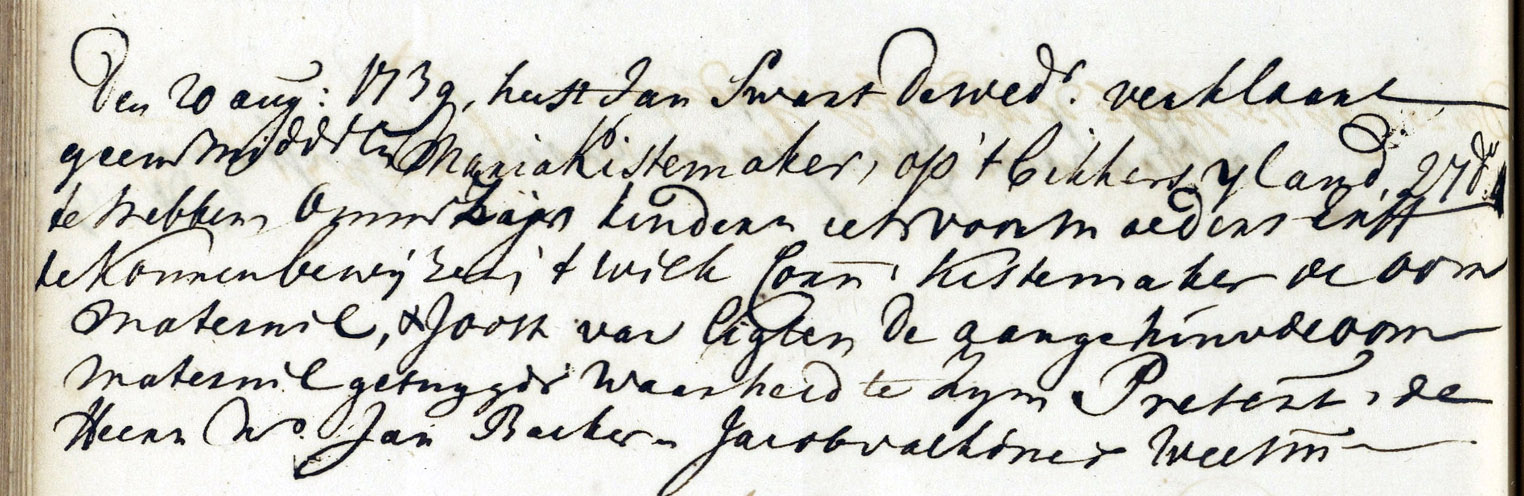 Den 20 aug: 1739, heeft Jan Swart de wedr. verklaart
geen middelen Maria Kistemaker, op 't Bikkers yland,
te hebben omme zijn kinderen iets voor moeders Erff
te konnen bewijzen, t welk Coen: Kistemaker de oom
maternel, & Joost van Ligten de aangehuwde oom
maternel getuygde waarheid te zyn Present, de
Heeren Mr. Jan Backer & Jacob valkenier Weesmn